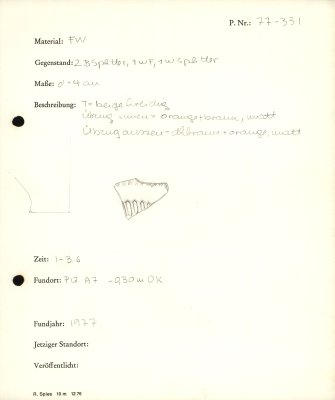 P. Nr.: 77-331
Material: FW
Gegenstand: 2 BSplitter, 1 WF, 1 WSplitter
Maße: 4 cm
Beschreibung: T = beige kreidig
Überzug innen = orange + braun, matt
Überzug aussen = dlbraun + orange, matt
Zeit: 1-3.6
Fundort: A7 -0,30 m OK
Fundjahr: 1977
Jetziger Standort:
Veröffentlicht:
R. Spies 10 m 12 76